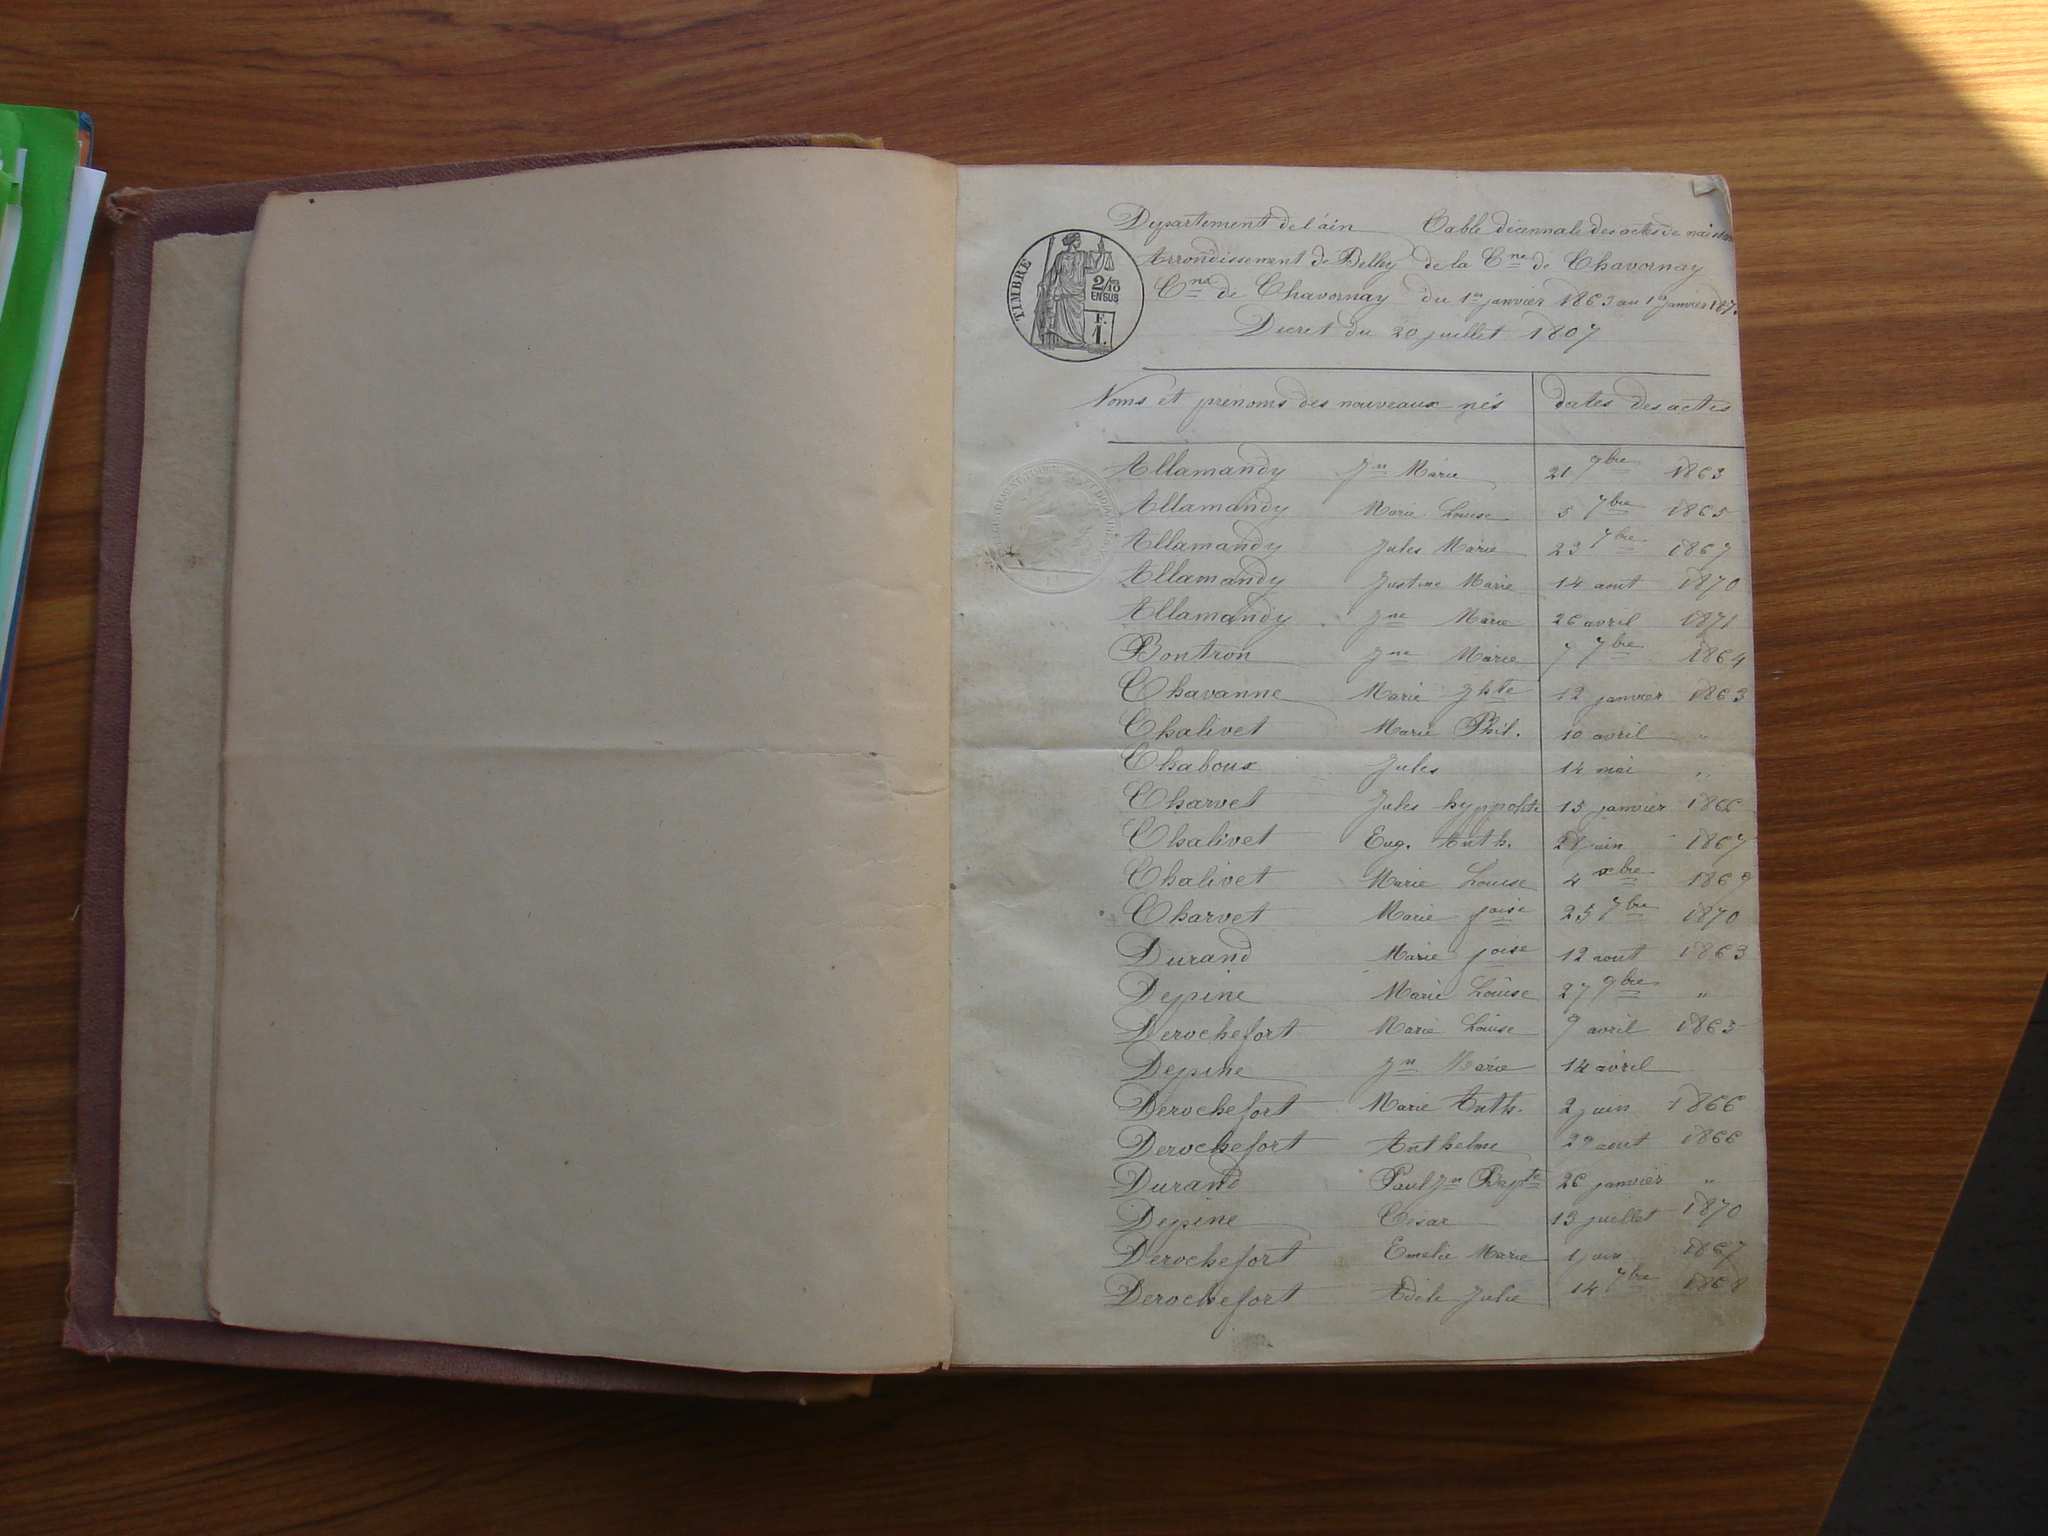 Département de l'ain Table décennale des actes de naissan
Arrondissement de Belley de la Cne de Chavornay
Cne de Chavornay du 1er janvier 1863 au 1er janvier 187
Décret du 20 juillet 1807
TIMBRE
2/10
EN SUS
F.
1.
Noms et prénoms des nouveaux nés dates des actes
Allamandy Jn Marie 21 9bre 1863
Allamandy Marie Louise 5 7bre 1865
Allamandy Jules Marie 23 7bre 1867
Allamandy Justine Marie 14 aout 1870
Allamandy Jne Marie 26 avril 1871
Bontron Jne Marie 7 7bre 1864
Chavanne Marie Jhte 12 janvier 1863
Chalivet Marie Phil. 10 avril "
Chaboux Jules 14 mai "
Charvet Jules hyppolite 15 janvier 1866
Chalivet Eug. Anth. 28 juin 1867
Chalivet Marie Louise 4 xbre 1869
Charvet Marie foise 25 7bre 1870
Durand Marie foise 12 aout 1863
Depine Marie Louise 27 9bre "
Derochefort Marie Louise 9 avril 1865
Depine Jn Marie 14 avril
Derochefort Marie Anth. 2 juin 1866
Derochefort Anthelme 29 aout 1866
Durand Paul Jn Bapte 26 janvier "
Depine César 13 juillet 1870
Derochefort Emelie Marie 1 juin 1867
Derochefort Adèle Julie 14 7bre 1868